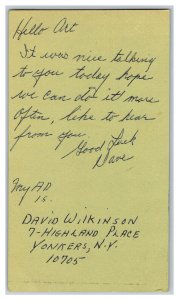 Hello Art
It was nice talking
to you today hope
we can do it more
Often, like to hear
from you.
Good Luck
Dave
My AD
is.
DAVID WILKINSON
7-HIGHLAND PLACE
YONKERS, N.Y.
10705